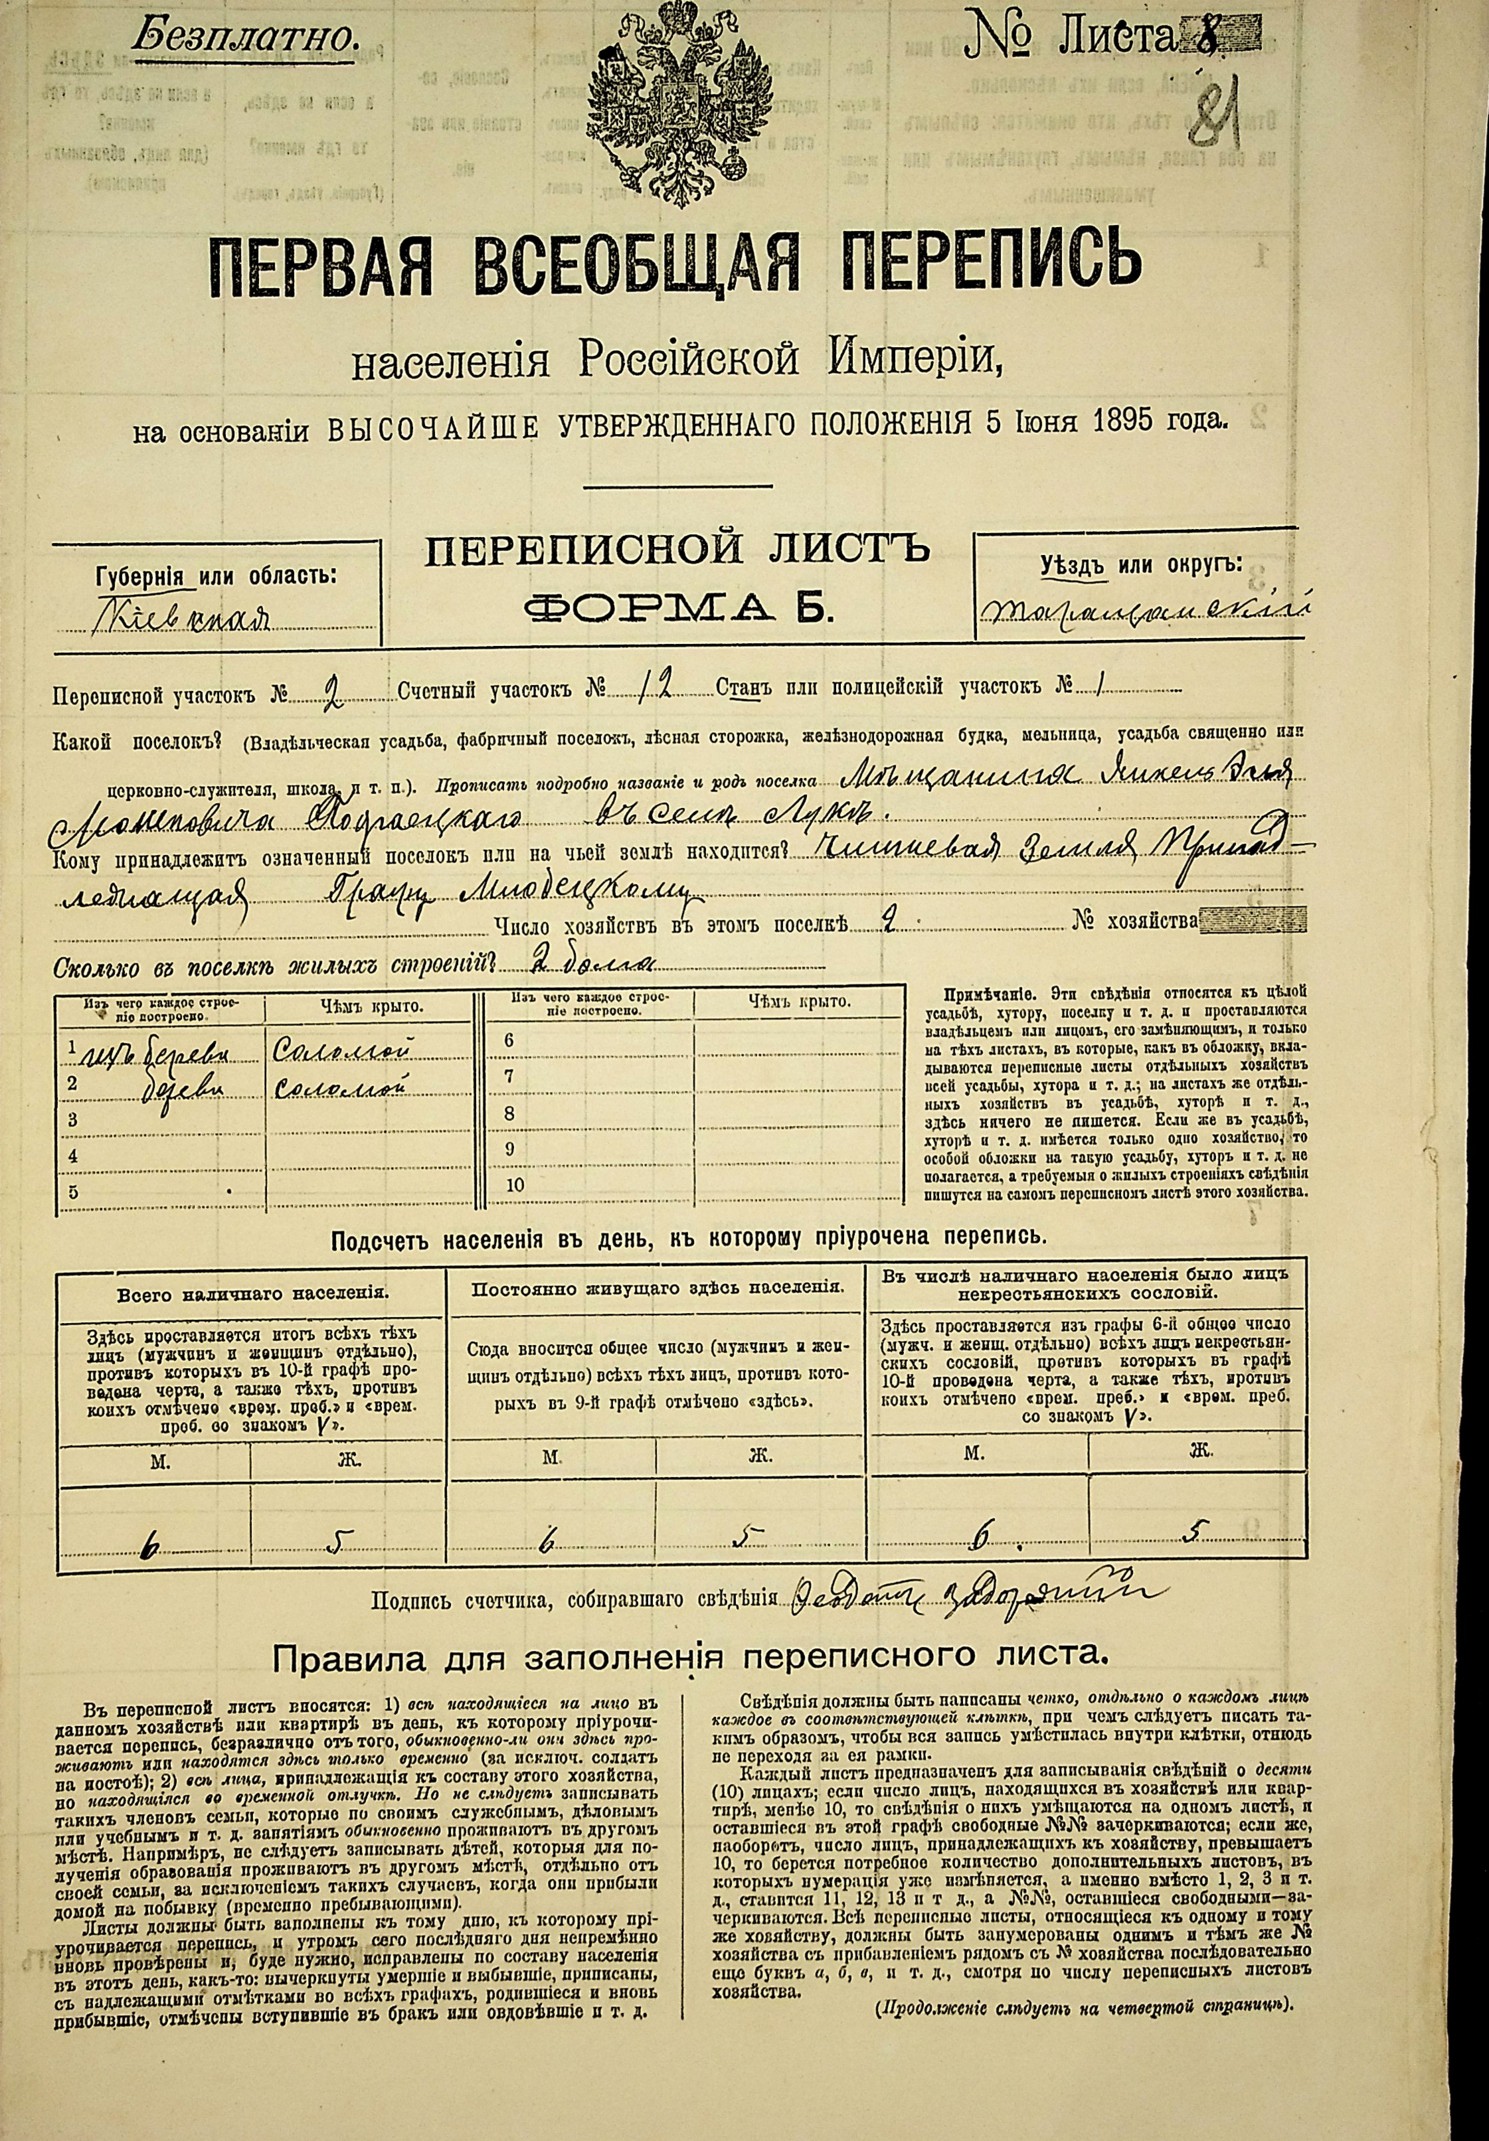 Безплатно.
№ Листа 8
81
ПЕРВАЯ ВСЕОБЩАЯ ПЕРЕПИСЬ
населенія Россійской Имперіи,
на основаніи ВЫСОЧАЙШЕ УТВЕРЖДЕННАГО ПОЛОЖЕНІЯ 5 Іюня 1895 года.
ПЕРЕПИСНОЙ ЛИСТЪ
ФОРМА Б.
Губернія или область:
Кіевская
Уѣздъ или округъ:
Таращанскій
Переписной участокъ № 2 Счетный участокъ № 12 Станъ или полицейскій участокъ № 1
Какой поселокъ? (Владѣльческая усадьба, фабричный поселокъ, лѣсная сторожка, желѣзнодорожная будка, мельница, усадьба священно или
церковно-служителя, школа, и т. п.). Прописать подробно названіе и родъ поселка Мѣщанина
въ селѣ Лукѣ.
Кому принадлежитъ означенный поселокъ или на чьей землѣ находится? Чиншевая Земля Принад-
лежащая Графу Млодецкому
Число хозяйствъ въ этомъ поселкѣ 2 № хозяйства
Сколько въ поселкѣ жилыхъ строеній? 2
Изъ чего каждое строе-
ніе построено.
Чѣмъ крыто.
Изъ чего каждое строе-
ніе построено.
Чѣмъ крыто.
1 изъ дерева соломой
2 дерева соломой
3
4
5
6
7
8
9
10
Примѣчаніе. Эти свѣдѣнія относятся къ цѣлой
усадьбѣ, хутору, поселку и т. д. и проставляются
владѣльцемъ или лицомъ, его замѣняющимъ, и только
на тѣхъ листахъ, въ которые, какъ въ обложку, вкла-
дываются переписные листы отдѣльныхъ хозяйствъ
всей усадьбы, хутора и т. д.; на листахъ же отдѣль-
ныхъ хозяйствъ въ усадьбѣ, хуторѣ и т. д.,
здѣсь ничего не пишется. Если же въ усадьбѣ,
хуторѣ и т. д. имѣется только одно хозяйство, то
особой обложки на такую усадьбу, хуторъ и т. д. не
полагается, а требуемыя о жилыхъ строеніяхъ свѣдѣнія
пишутся на самомъ переписномъ листѣ этого хозяйства.
Подсчетъ населенія въ день, къ которому пріурочена перепись.
Всего наличнаго населенія.
Здѣсь проставляется итогъ всѣхъ тѣхъ
лицъ (мужчинъ и женщинъ отдѣльно),
противъ которыхъ въ 10-й графѣ про-
ведена черта, а также тѣхъ, противъ
коихъ отмѣчено «врем. преб.» и «врем.
преб. со знакомъ V».
Постоянно живущаго здѣсь населенія.
Сюда вносится общее число (мужчинъ и жен-
щинъ отдѣльно) всѣхъ тѣхъ лицъ, противъ кото-
рыхъ въ 9-й графѣ отмѣчено «здѣсь».
Въ числѣ наличнаго населенія было лицъ
некрестьянскихъ сословій.
Здѣсь проставляется изъ графы 6-й общее число
(мужч. и женщ. отдѣльно) всѣхъ лицъ некрестьян-
скихъ сословій, противъ которыхъ въ графѣ
10-й проведена черта, а также тѣхъ, противъ
коихъ отмѣчено «врем. преб.» и «врем. преб.
со знакомъ V».
М. Ж. М. Ж. М. Ж.
6 5 6 5 6 5
Подпись счетчика, собиравшаго свѣдѣнія
Правила для заполненія переписного листа.
Въ переписной листъ вносятся: 1) всѣ находящіеся на лицо въ
данномъ хозяйствѣ или квартирѣ въ день, къ которому пріурочи-
вается перепись, безразлично отъ того, обыкновенно-ли они здѣсь про-
живаютъ или находятся здѣсь только временно (за исключ. солдатъ
на постоѣ); 2) всѣ лица, принадлежащія къ составу этого хозяйства,
но находящіяся во временной отлучкѣ. Но не слѣдуетъ записывать
такихъ членовъ семьи, которые по своимъ служебнымъ, дѣловымъ
или учебнымъ и т. д. занятіямъ обыкновенно проживаютъ въ другомъ
мѣстѣ. Напримѣръ, не слѣдуетъ записывать дѣтей, которыя для по-
лученія образованія проживаютъ въ другомъ мѣстѣ, отдѣльно отъ
своей семьи, за исключеніемъ такихъ случаевъ, когда они прибыли
домой на побывку (временно пребывающими).
Листы должны быть заполнены къ тому дню, къ которому прі-
урочивается перепись, и утромъ сего послѣдняго дня непремѣнно
вновь провѣрены и, буде нужно, исправлены по составу населенія
въ этотъ день, какъ-то: вычеркнуты умершіе и выбывшіе, приписаны,
съ надлежащими отмѣтками во всѣхъ графахъ, родившіеся и вновь
прибывшіе, отмѣчены вступившіе въ бракъ или овдовѣвшіе и т. д.
Свѣдѣнія должны быть написаны четко, отдѣльно о каждомъ лицѣ
каждое въ соотвѣтствующей клѣткѣ, при чемъ слѣдуетъ писать та-
кимъ образомъ, чтобы вся запись умѣстилась внутри клѣтки, отнюдь
не переходя за ея рамки.
Каждый листъ предназначенъ для записыванія свѣдѣній о десяти
(10) лицахъ; если число лицъ, находящихся въ хозяйствѣ или квар-
тирѣ, менѣе 10, то свѣдѣнія о нихъ умѣщаются на одномъ листѣ, и
оставшіеся въ этой графѣ свободные №№ зачеркиваются; если же,
наоборотъ, число лицъ, принадлежащихъ къ хозяйству, превышаетъ
10, то берется потребное количество дополнительныхъ листовъ, въ
которыхъ нумерація уже измѣняется, а именно вмѣсто 1, 2, 3 и т.
д., ставится 11, 12, 13 и т д., а №№, оставшіеся свободными—за-
черкиваются. Всѣ переписные листы, относящіеся къ одному и тому
же хозяйству, должны быть занумерованы однимъ и тѣмъ же №
хозяйства съ прибавленіемъ рядомъ съ № хозяйства послѣдовательно
еще буквъ а, б, в, и т. д., смотря по числу переписныхъ листовъ
хозяйства.
(Продолженіе слѣдуетъ на четвертой страницѣ).